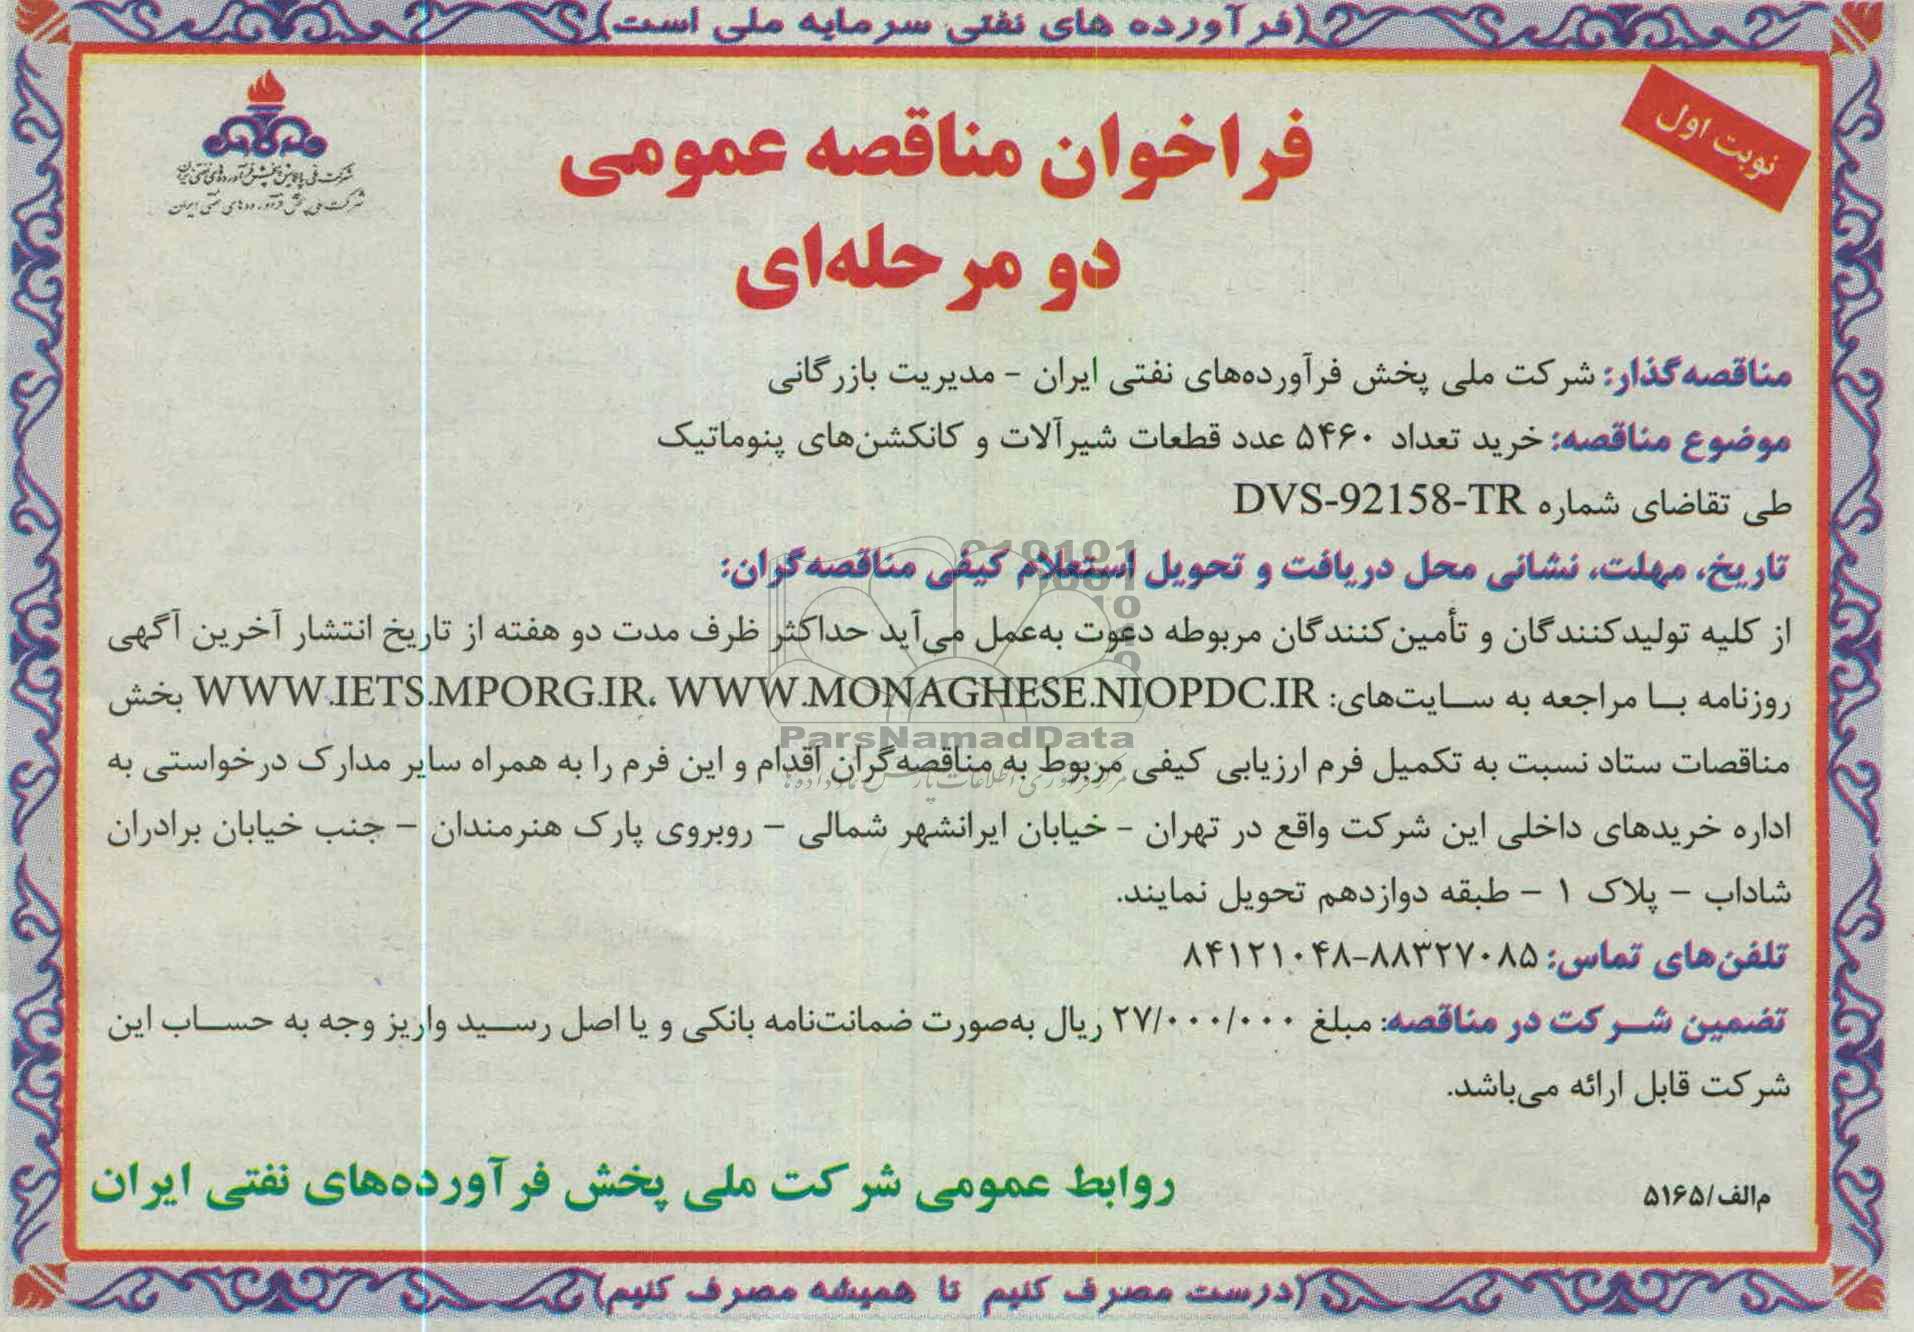 (فرآورده های نفتی سرمایه ملی است)
نوبت اول
شرکت ملی پالایش و پخش فرآورده‌های نفتی ایران
شرکت ملی پخش فرآورده‌های نفتی ایران
فراخوان مناقصه عمومی
دو مرحله‌ای
مناقصه‌گذار: شرکت ملی پخش فرآورده‌های نفتی ایران - مدیریت بازرگانی
موضوع مناقصه: خرید تعداد ۵۴۶۰ عدد قطعات شیرآلات و کانکشن‌های پنوماتیک
طی تقاضای شماره DVS-92158-TR
تاریخ، مهلت، نشانی محل دریافت و تحویل استعلام کیفی مناقصه‌گران:
از کلیه تولیدکنندگان و تأمین‌کنندگان مربوطه دعوت به‌عمل می‌آید حداکثر ظرف مدت دو هفته از تاریخ انتشار آخرین آگهی
روزنامه با مراجعه به سایت‌های: WWW.IETS.MPORG.IR، WWW.MONAGHESE.NIOPDC.IR بخش
مناقصات ستاد نسبت به تکمیل فرم ارزیابی کیفی مربوط به مناقصه‌گران اقدام و این فرم را به همراه سایر مدارک درخواستی به
اداره خریدهای داخلی این شرکت واقع در تهران - خیابان ایرانشهر شمالی – روبروی پارک هنرمندان – جنب خیابان برادران
شاداب – پلاک ۱ – طبقه دوازدهم تحویل نمایند.
تلفن‌های تماس: ۸۸۳۲۷۰۸۵-۸۴۱۲۱۰۴۸
تضمین شرکت در مناقصه: مبلغ ۲۷/۰۰۰/۰۰۰ ریال به‌صورت ضمانت‌نامه بانکی و یا اصل رسید واریز وجه به حساب این
شرکت قابل ارائه می‌باشد.
م‌الف/۵۱۶۵
روابط عمومی شرکت ملی پخش فرآورده‌های نفتی ایران
(درست مصرف کنیم تا همیشه مصرف کنیم)
ParsNamadData